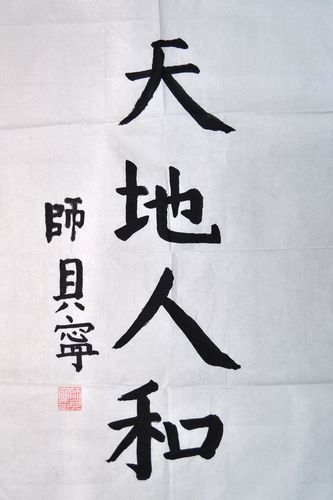 天地人和
師貝寧